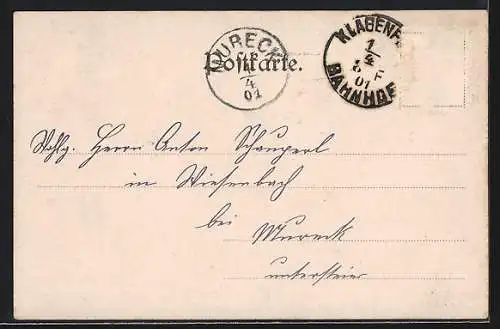 MURECK
1
4
01
Postkarte.
KLAGENF
1
4
01
BAHNHOF
Wohlg. Herrn Anton Schauperl
in Wiesenbach
bei
Mureck
untersteier